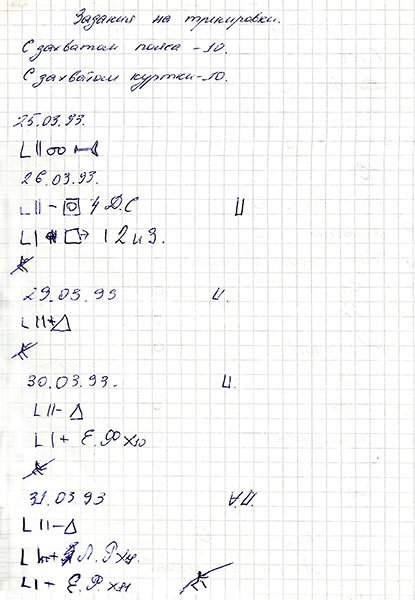 Задания на тренировки.
С захватом пояса - 10.
С захватом куртки - 10.
25.03.93.
L II oo
26.03.93.
L II - 4 Д.С Ц
L I 1 2 и 3.
29.03.93 Ц.
L II + △
30.03.93. Ц.
L II - △
L I + Е. Ф x10
31.03 93
L II - △
Л. Р
L I + Е. Р.